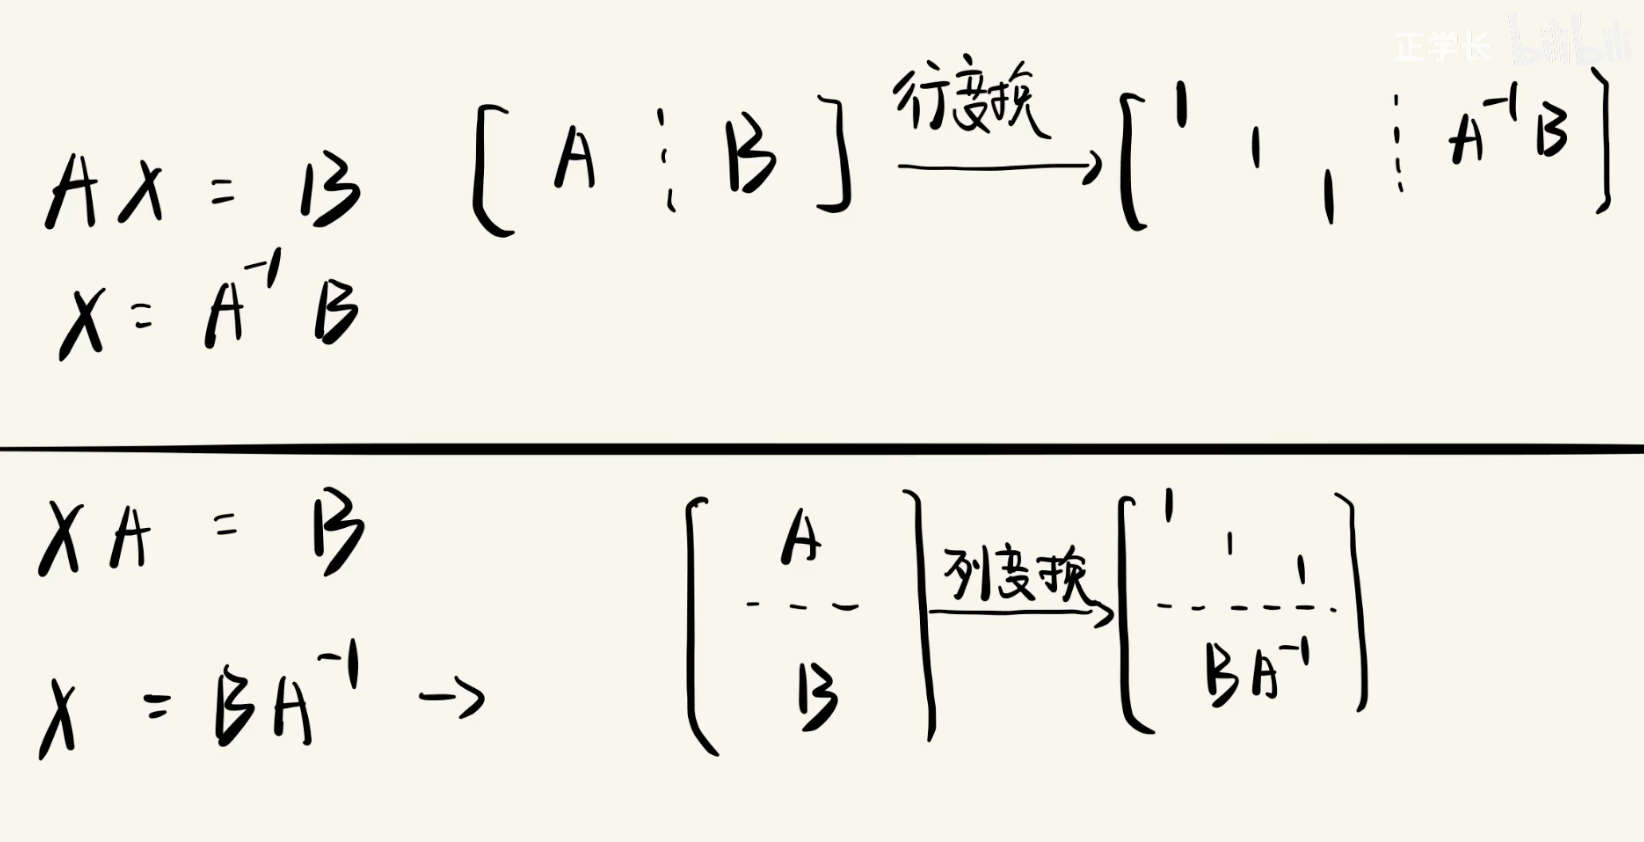 正学长 bilibili
AX = B [ A ⋮ B ] 行变换 → [ 1 1 1 ⋮ A⁻¹B ]
X = A⁻¹ B
XA = B
X = BA⁻¹ →
[ A
- - -
B ]
列变换 →
[ 1 1 1
- - - - - -
BA⁻¹ ]